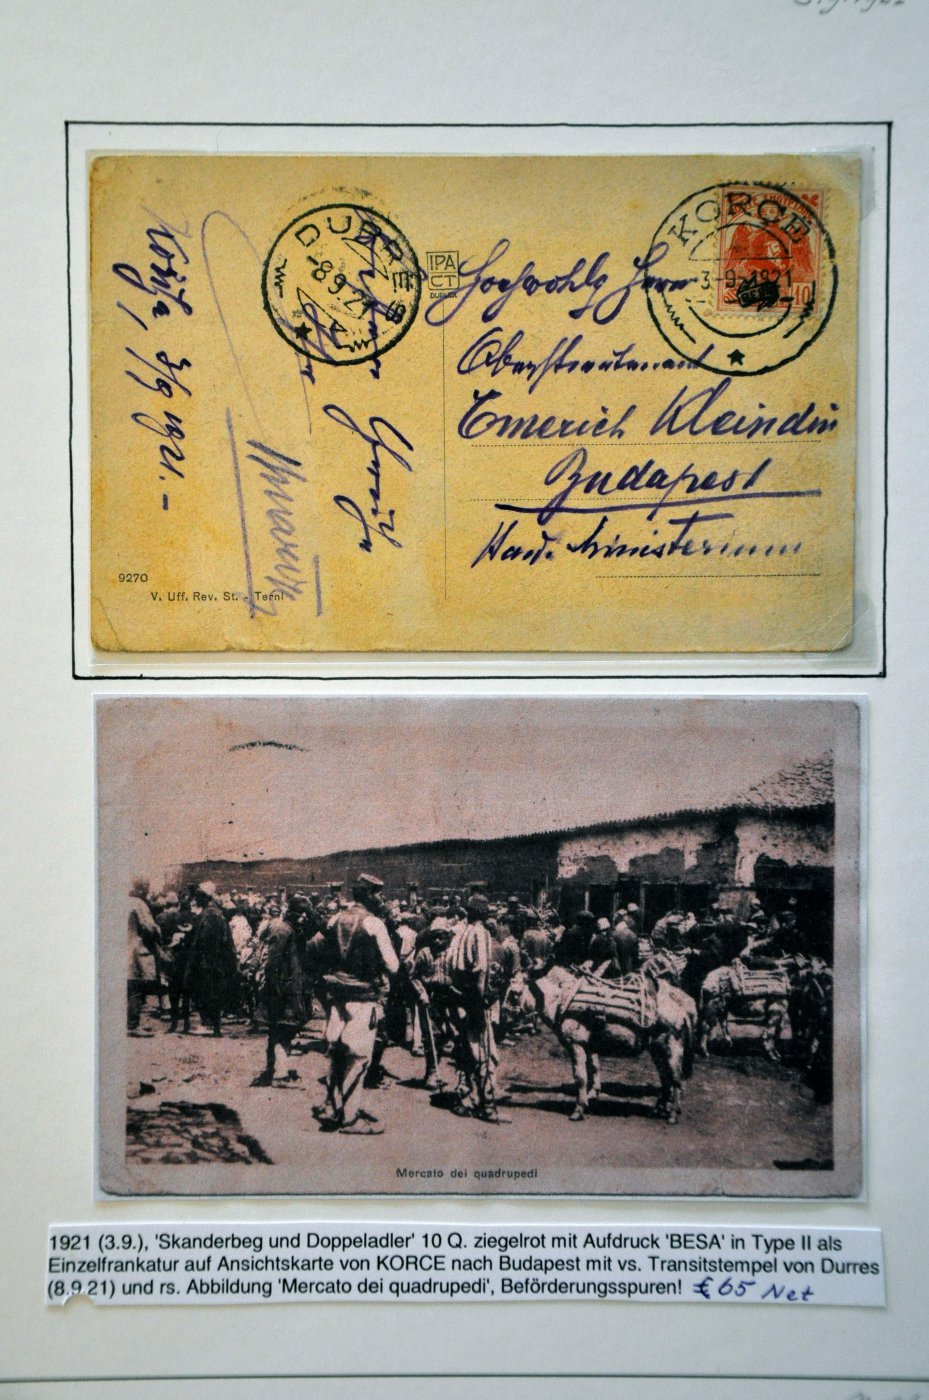 DURRËS
-8.9.21
A
IPA
CT
DUPLEX
KORÇE
3.9.1921
10
Hochwohlg Herrn
Oberstleutnant
Emerich Kleindin
Budapest
Ministerium
3/9 1921. -
9270
V. Uff. Rev. St. - Terni
Mercato dei quadrupedi
1921 (3.9.), 'Skanderbeg und Doppeladler' 10 Q. ziegelrot mit Aufdruck 'BESA' in Type II als
Einzelfrankatur auf Ansichtskarte von KORCE nach Budapest mit vs. Transitstempel von Durres
(8.9.21) und rs. Abbildung 'Mercato dei quadrupedi', Beförderungsspuren! £65 Net